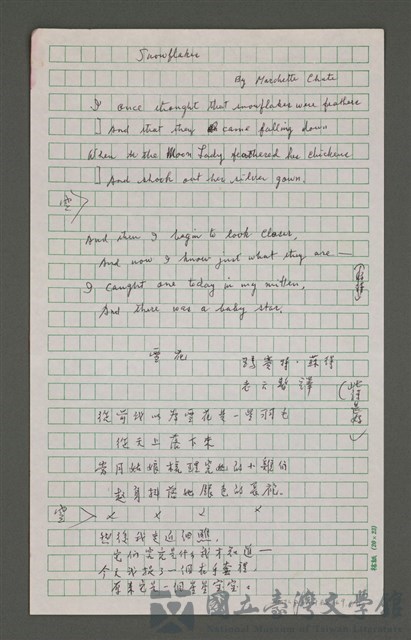 Snowflakes
By Marchette Chute
I once thought that snowflakes were feathers
And that they came falling down
When the Moon Lady feathered her chickens
And shook out her silver gown.
空
And then I began to look closer,
And now I know just what they are —
I caught one today in my mitten,
And there was a baby star.
雪花
瑪賽特·蘇特
譯
從前我以為雪花是一些羽毛
從天上落下來
當月姑娘梳理完她的小雞仔
起身抖落她銀色的
空 × × × ×
然後我更近細瞧
它們究竟是什么我才知道—
今天我捉了一個在手套裡，
原来它是一個星星宝宝。
稿紙 (20×25)
國立臺灣文學館
National Museum of Taiwan Literature